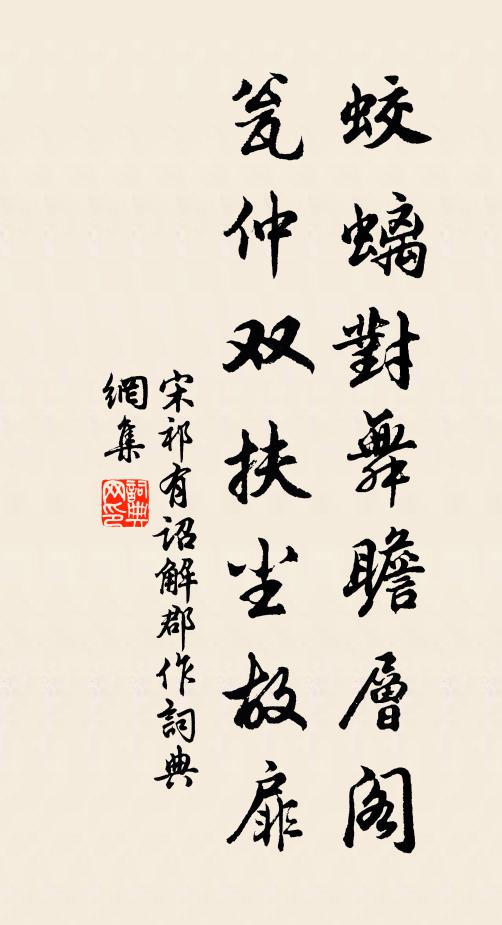 蛟螭對舞瞻層阁
瓮仲双扶坐故扉
宋祁有诏解郡作詞典
網集
詞典網印